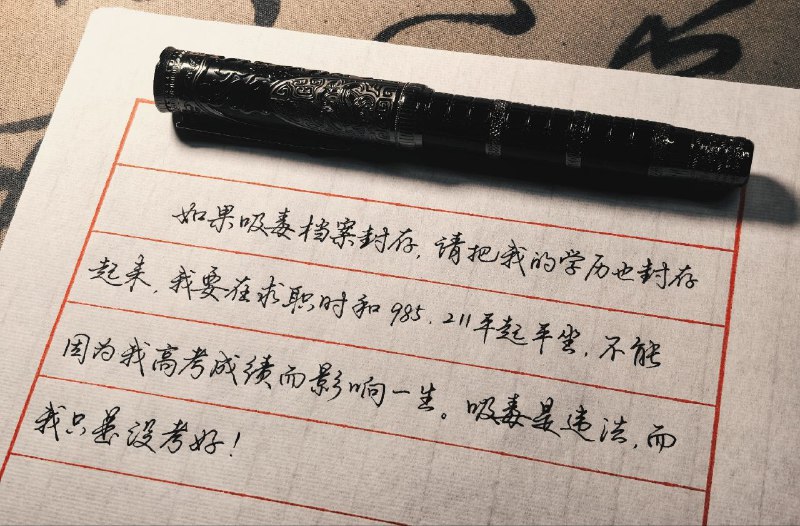 如果吸毒档案封存，请把我的学历也封存
起来，我要在求职时和985、211平起平坐，不能
因为我高考成绩而影响一生。吸毒是违法，而
我只是没考好！